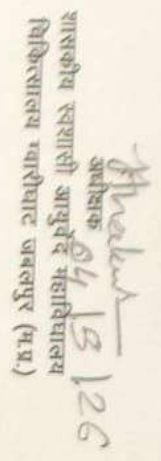 04/8/26
अधीक्षक
शासकीय स्वशासी आयुर्वेद महाविद्यालय
चिकित्सालय ग्वारीघाट जबलपुर (म.प्र.)